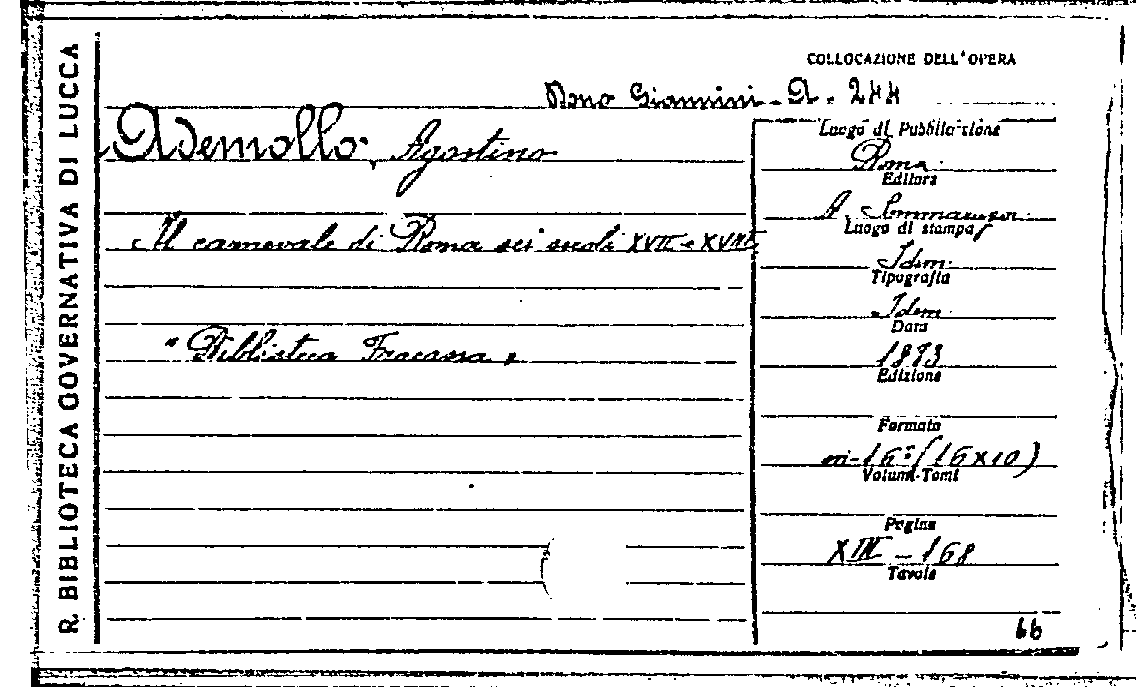 R. BIBLIOTECA GOVERNATIVA DI LUCCA
COLLOCAZIONE DELL'OPERA
Dono Giannini - A. 244
Ademollo, Agostino
Il carnevale di Roma nei secoli XVII e XVIII
"Biblioteca Fracassa"
Luogo di Pubblicazione
Roma
Editore
A. Sommaruga
Luogo di stampa
Idem
Tipografia
Idem
Data
1883
Edizione
Formato
in-16° (16x10)
Volumi-Tomi
Pagine
XIII - 168
Tavole
66